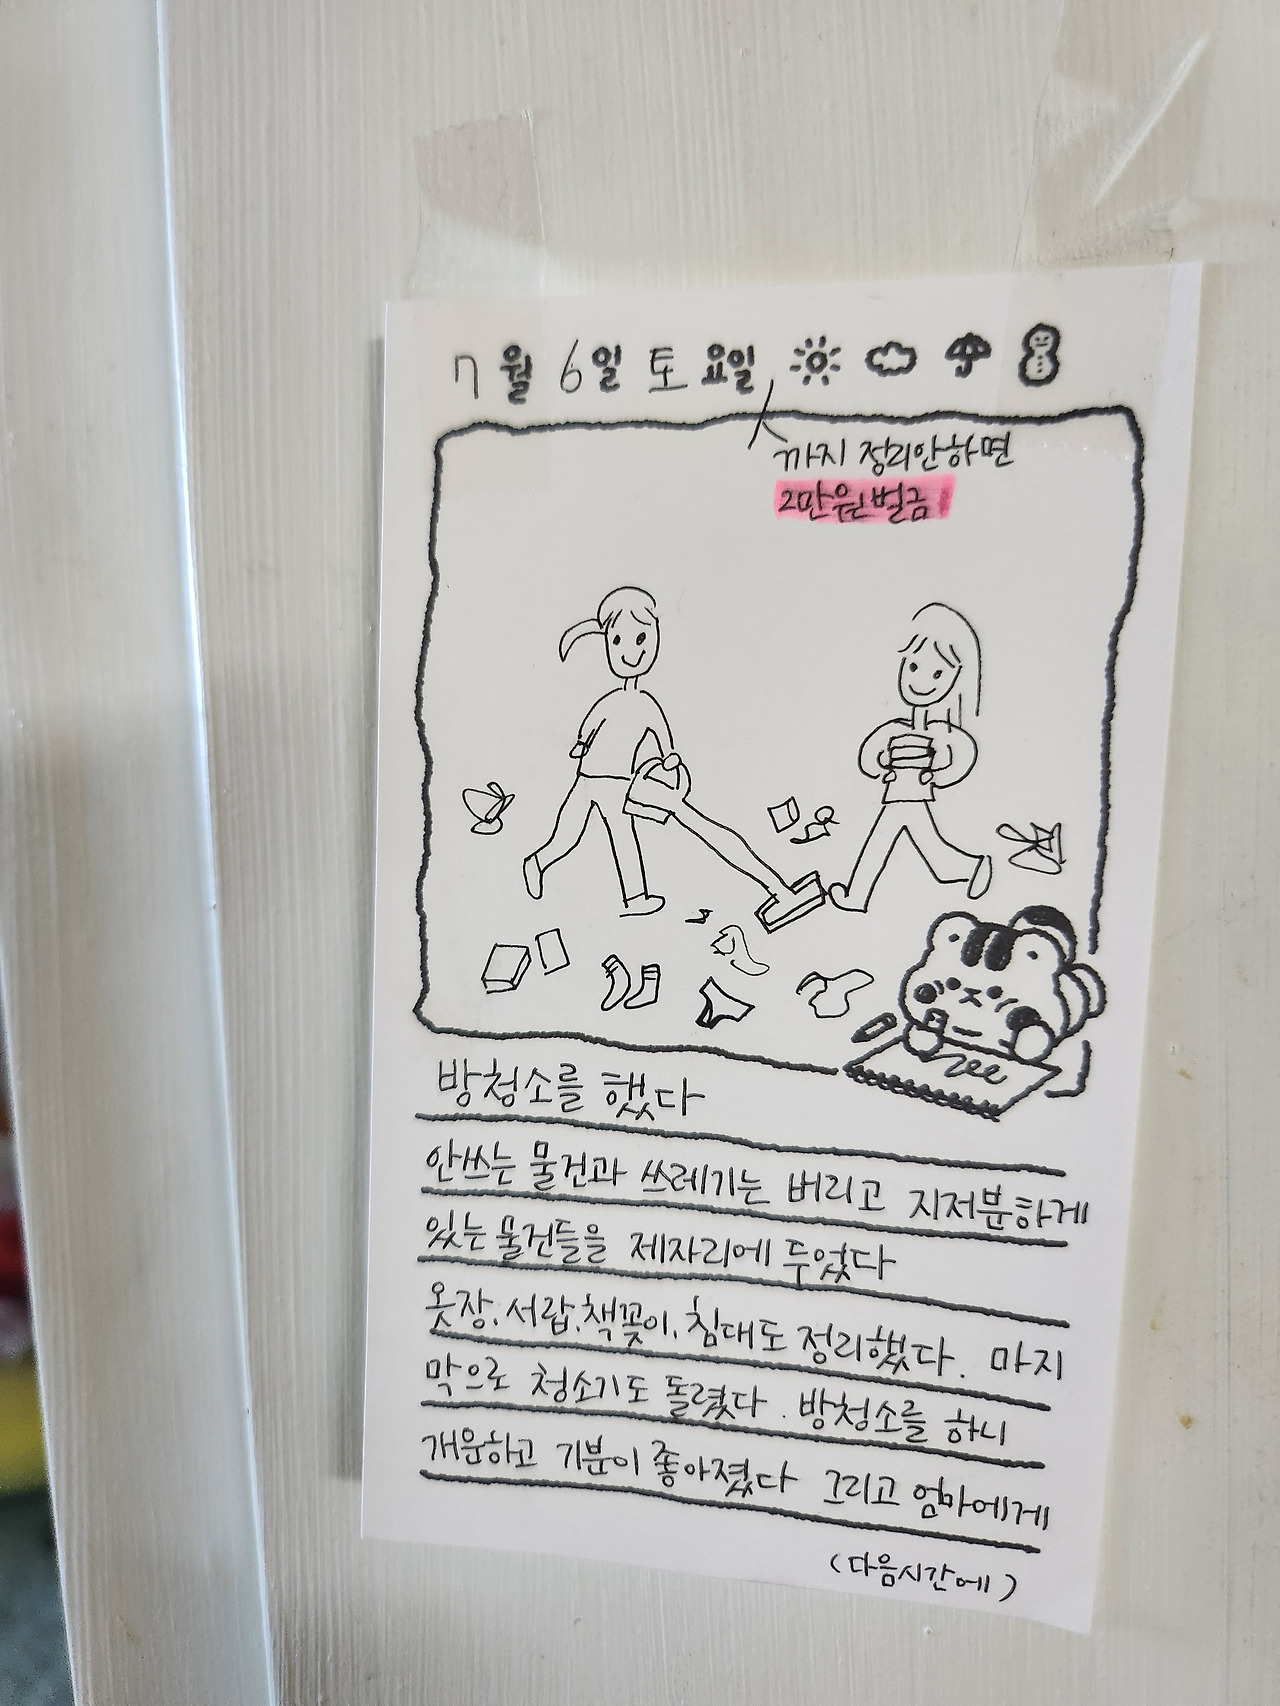 7월 6일 토요일
까지 정리안하면
2만원 벌금
방청소를 했다
안쓰는 물건과 쓰레기는 버리고 지저분하게
있는 물건들을 제자리에 두었다
옷장, 서랍, 책꽂이, 침대도 정리했다. 마지
막으로 청소기도 돌렸다. 방청소를 하니
개운하고 기분이 좋아졌다 그리고 엄마에게
(다음시간에)